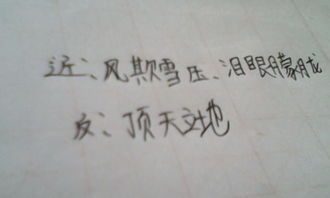 近：风欺雪压、泪眼朦胧
反：顶天立地